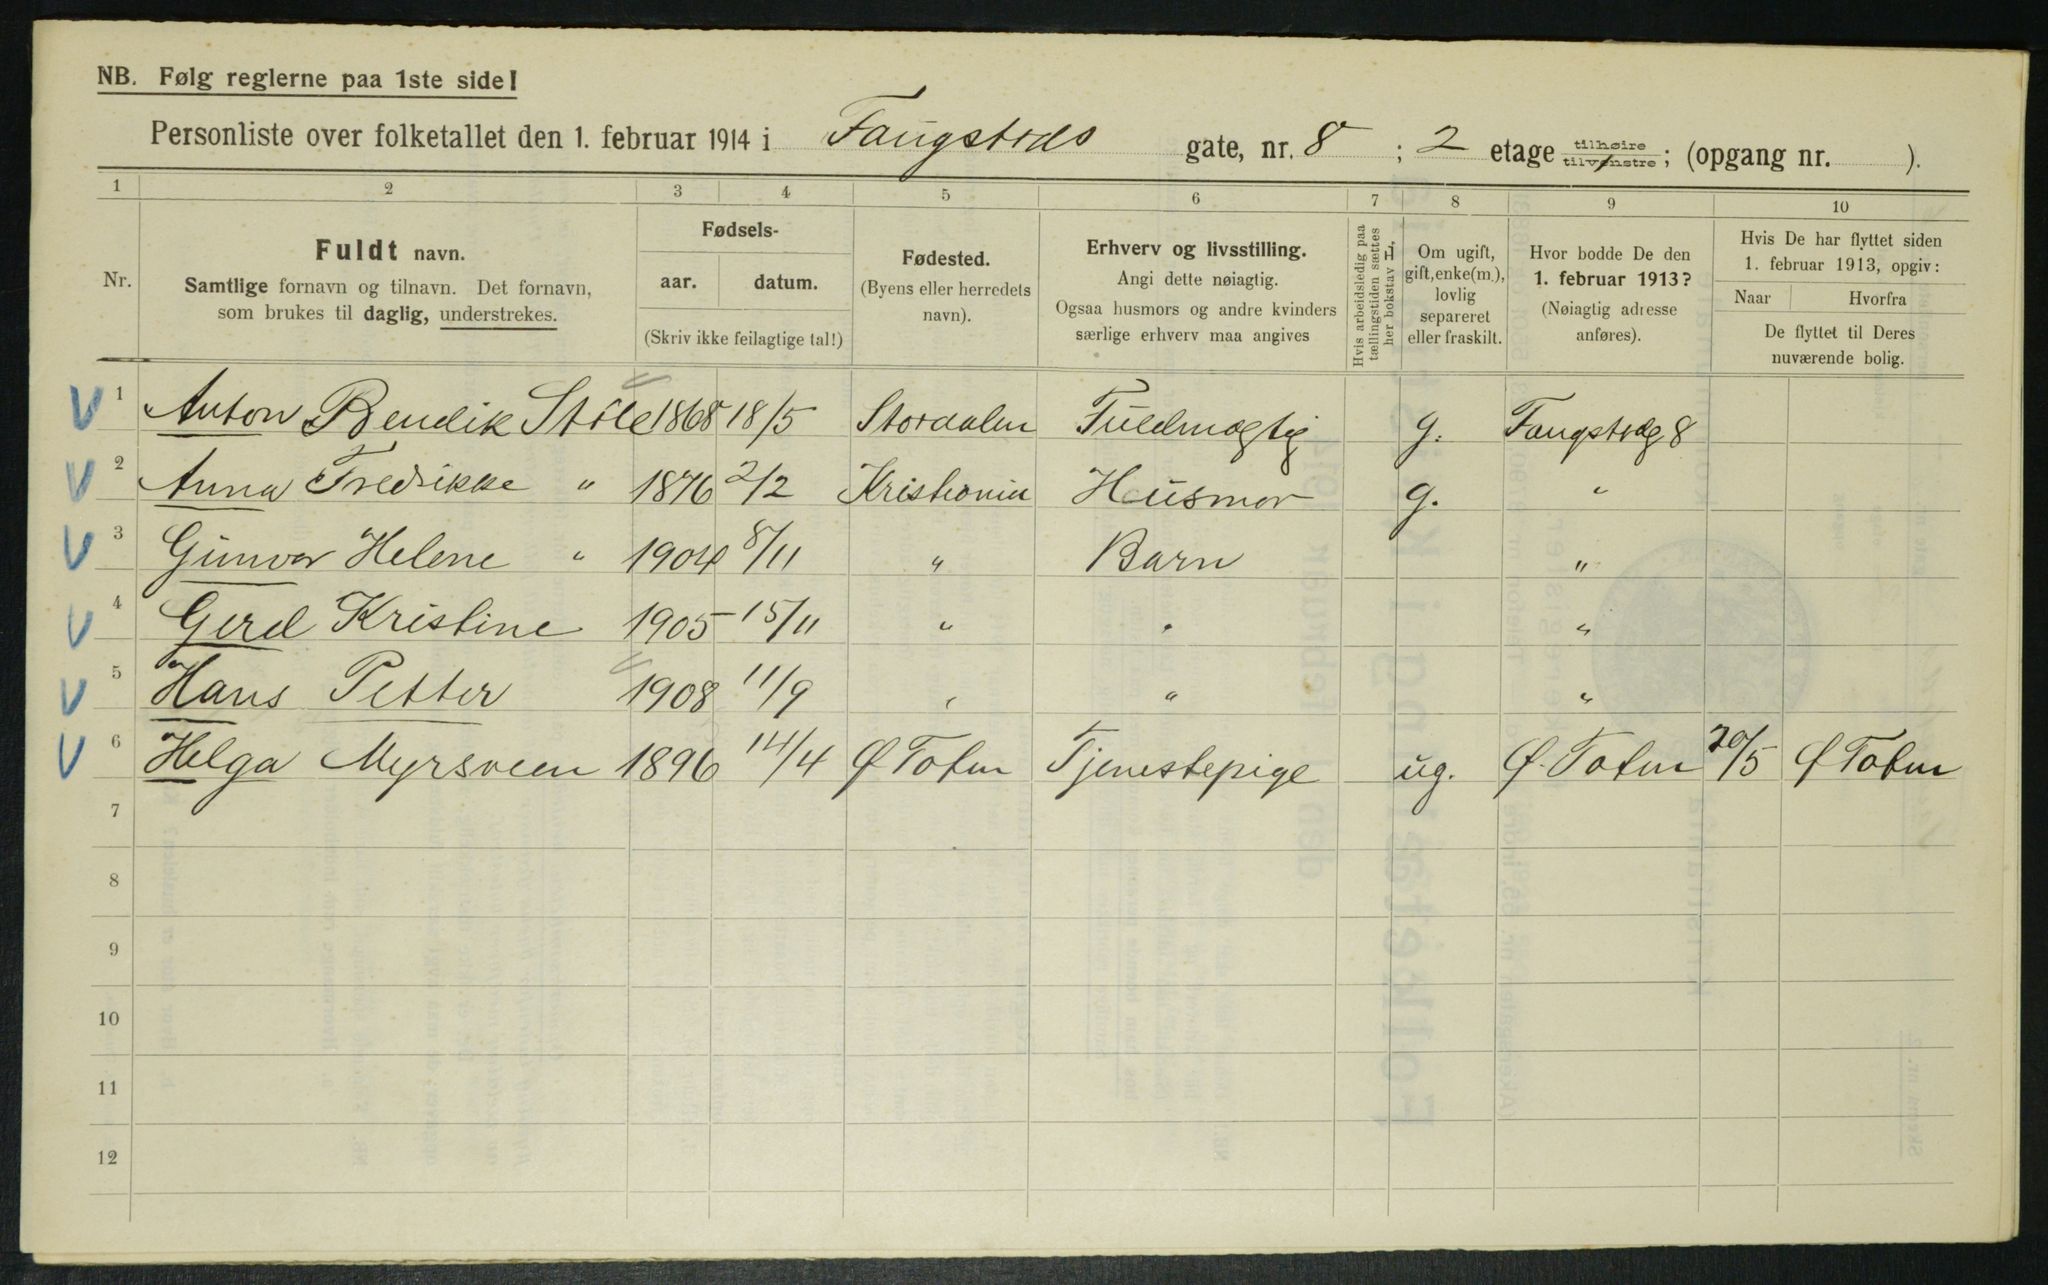 NB. Følg reglerne paa 1ste side!
Personliste over folketallet den 1. februar 1914 i Faugstads gate, nr. 8 ; 2 etage tilhøire tilvenstre ; (opgang nr. ).
1 2 3 4 5 6 7 8 9 10
Nr.
Fuldt navn.
Samtlige fornavn og tilnavn. Det fornavn,
som brukes til daglig, understrekes.
Fødsels-
aar. datum.
(Skriv ikke feilagtige tal!)
Fødested.
(Byens eller herredets
navn).
Erhverv og livsstilling.
Angi dette nøiagtig.
Ogsaa husmors og andre kvinders
særlige erhverv maa angives
Hvis arbeidsledig paa
tællingstiden sættes
her bokstav L.
Om ugift,
gift, enke(m.),
lovlig
separeret
eller fraskilt.
Hvor bodde De den
1. februar 1913?
(Nøiagtig adresse
anføres).
Hvis De har flyttet siden
1. februar 1913, opgiv:
Naar Hvorfra
De flyttet til Deres
nuværende bolig.
1 Anton Bendik 1868 18/5 Stordalen Fuldmægtig g. 8
2 Anna Fredrikke " 1876 2/2 Kristiania Husmor g. "
3 Gunvor Helene " 1904 8/11 " Barn "
4 Gerd Kristine 1905 15/11 " " "
5 Hans Petter 1908 11/9 " " "
6 Helga Myrsveen 1896 14/4 Ø Toten Tjenestepige ug. Ø. Toten 20/5 Ø Toten
7
8
9
10
11
12